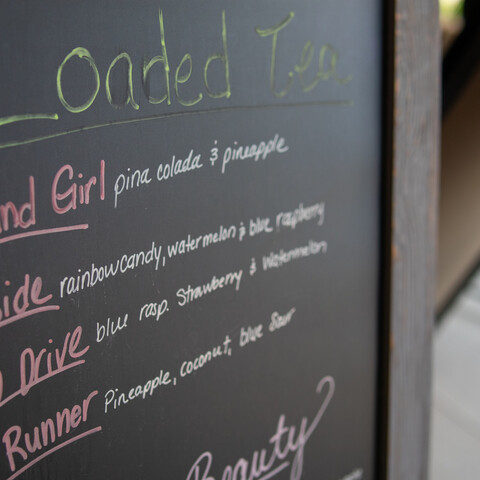 oaded Tea
nd Girl pina colada & pineapple
ide rainbowcandy, watermelon & blue raspberry
Drive blue rasp. Strawberry & Watermelon
Runner Pineapple, coconut, blue Sour
Beauty